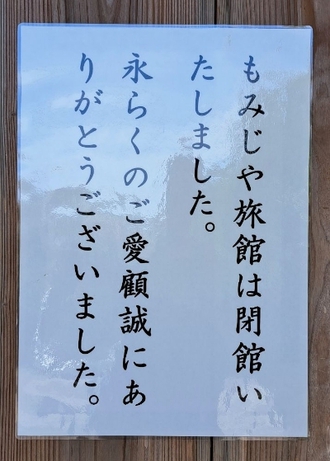 もみじや旅館は閉館い
たしました。
永らくのご愛顧誠にあ
りがとうございました。